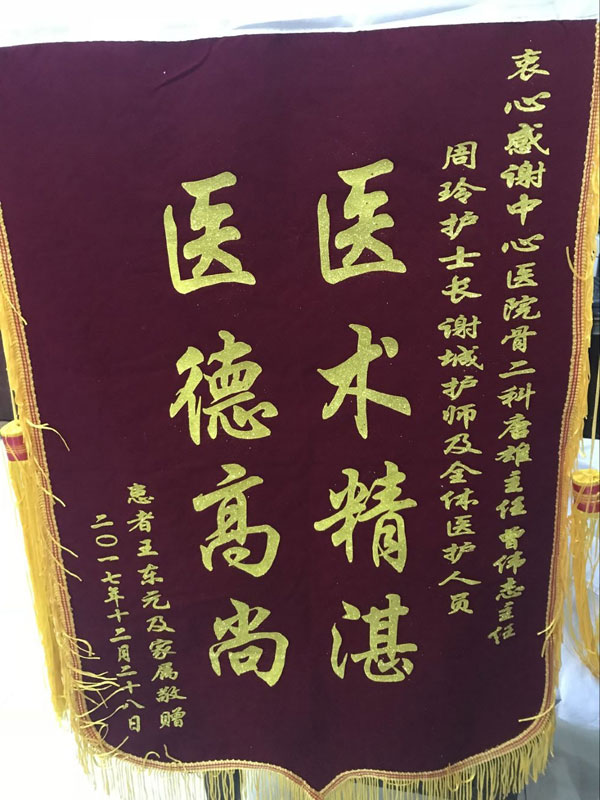 衷心感谢中心医院骨二科唐雄主任曹伟志主任
周玲护士长谢城护师及全体医护人员
医术精湛
医德高尚
患者王东元及家属敬赠
二〇一七年十二月二十八日